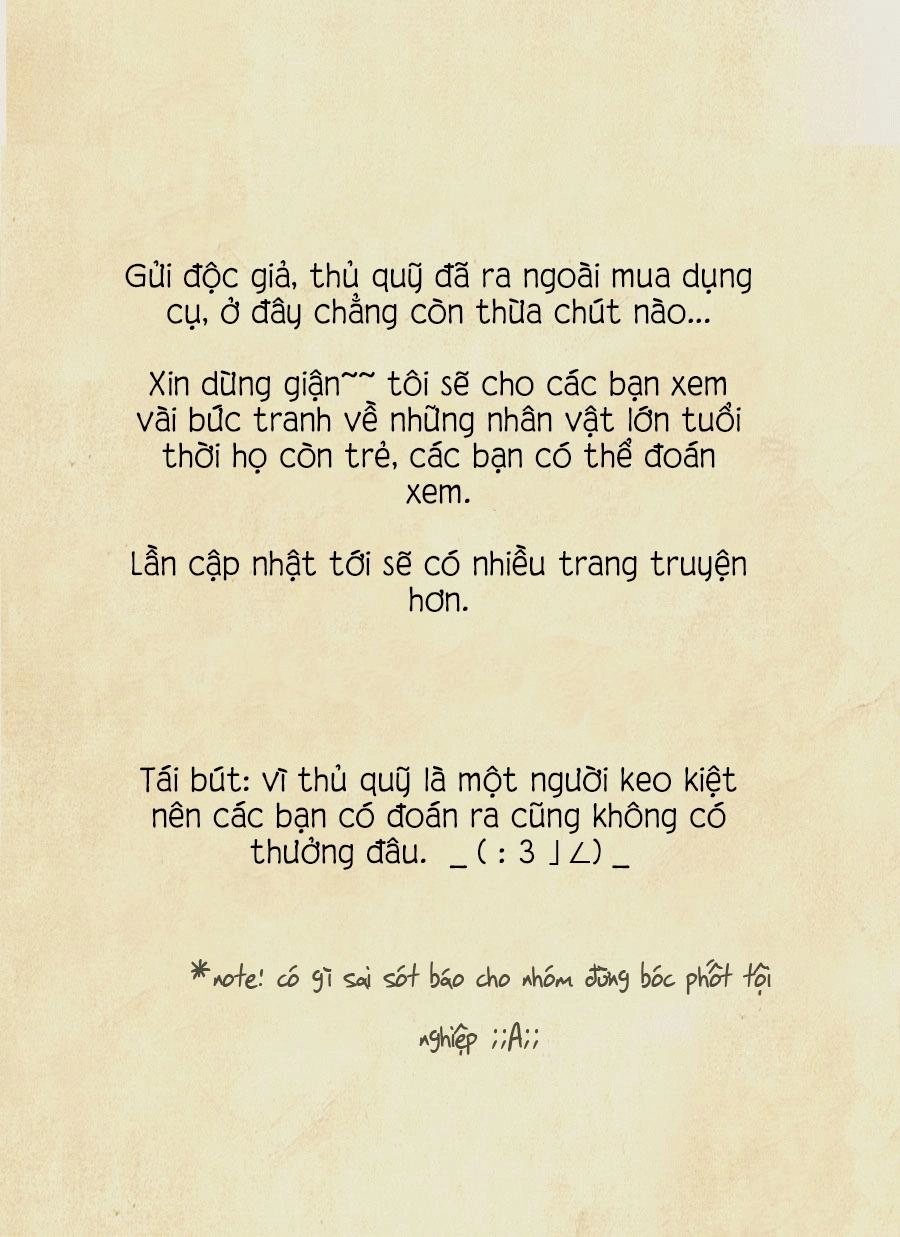 Gửi độc giả, thủ quỹ đã ra ngoài mua dụng
cụ, ở đây chẳng còn thừa chút nào...
Xin dừng giận~~ tôi sẽ cho các bạn xem
vài bức tranh về những nhân vật lớn tuổi
thời họ còn trẻ, các bạn có thể đoán
xem.
Lần cập nhật tới sẽ có nhiều trang truyện
hơn.
Tái bút: vì thủ quỹ là một người keo kiệt
nên các bạn có đoán ra cũng không có
thưởng đâu. _ ( : 3 」∠) _
*note! có gì sai sót báo cho nhóm đừng bóc phốt tội
nghiệp ;;A;;